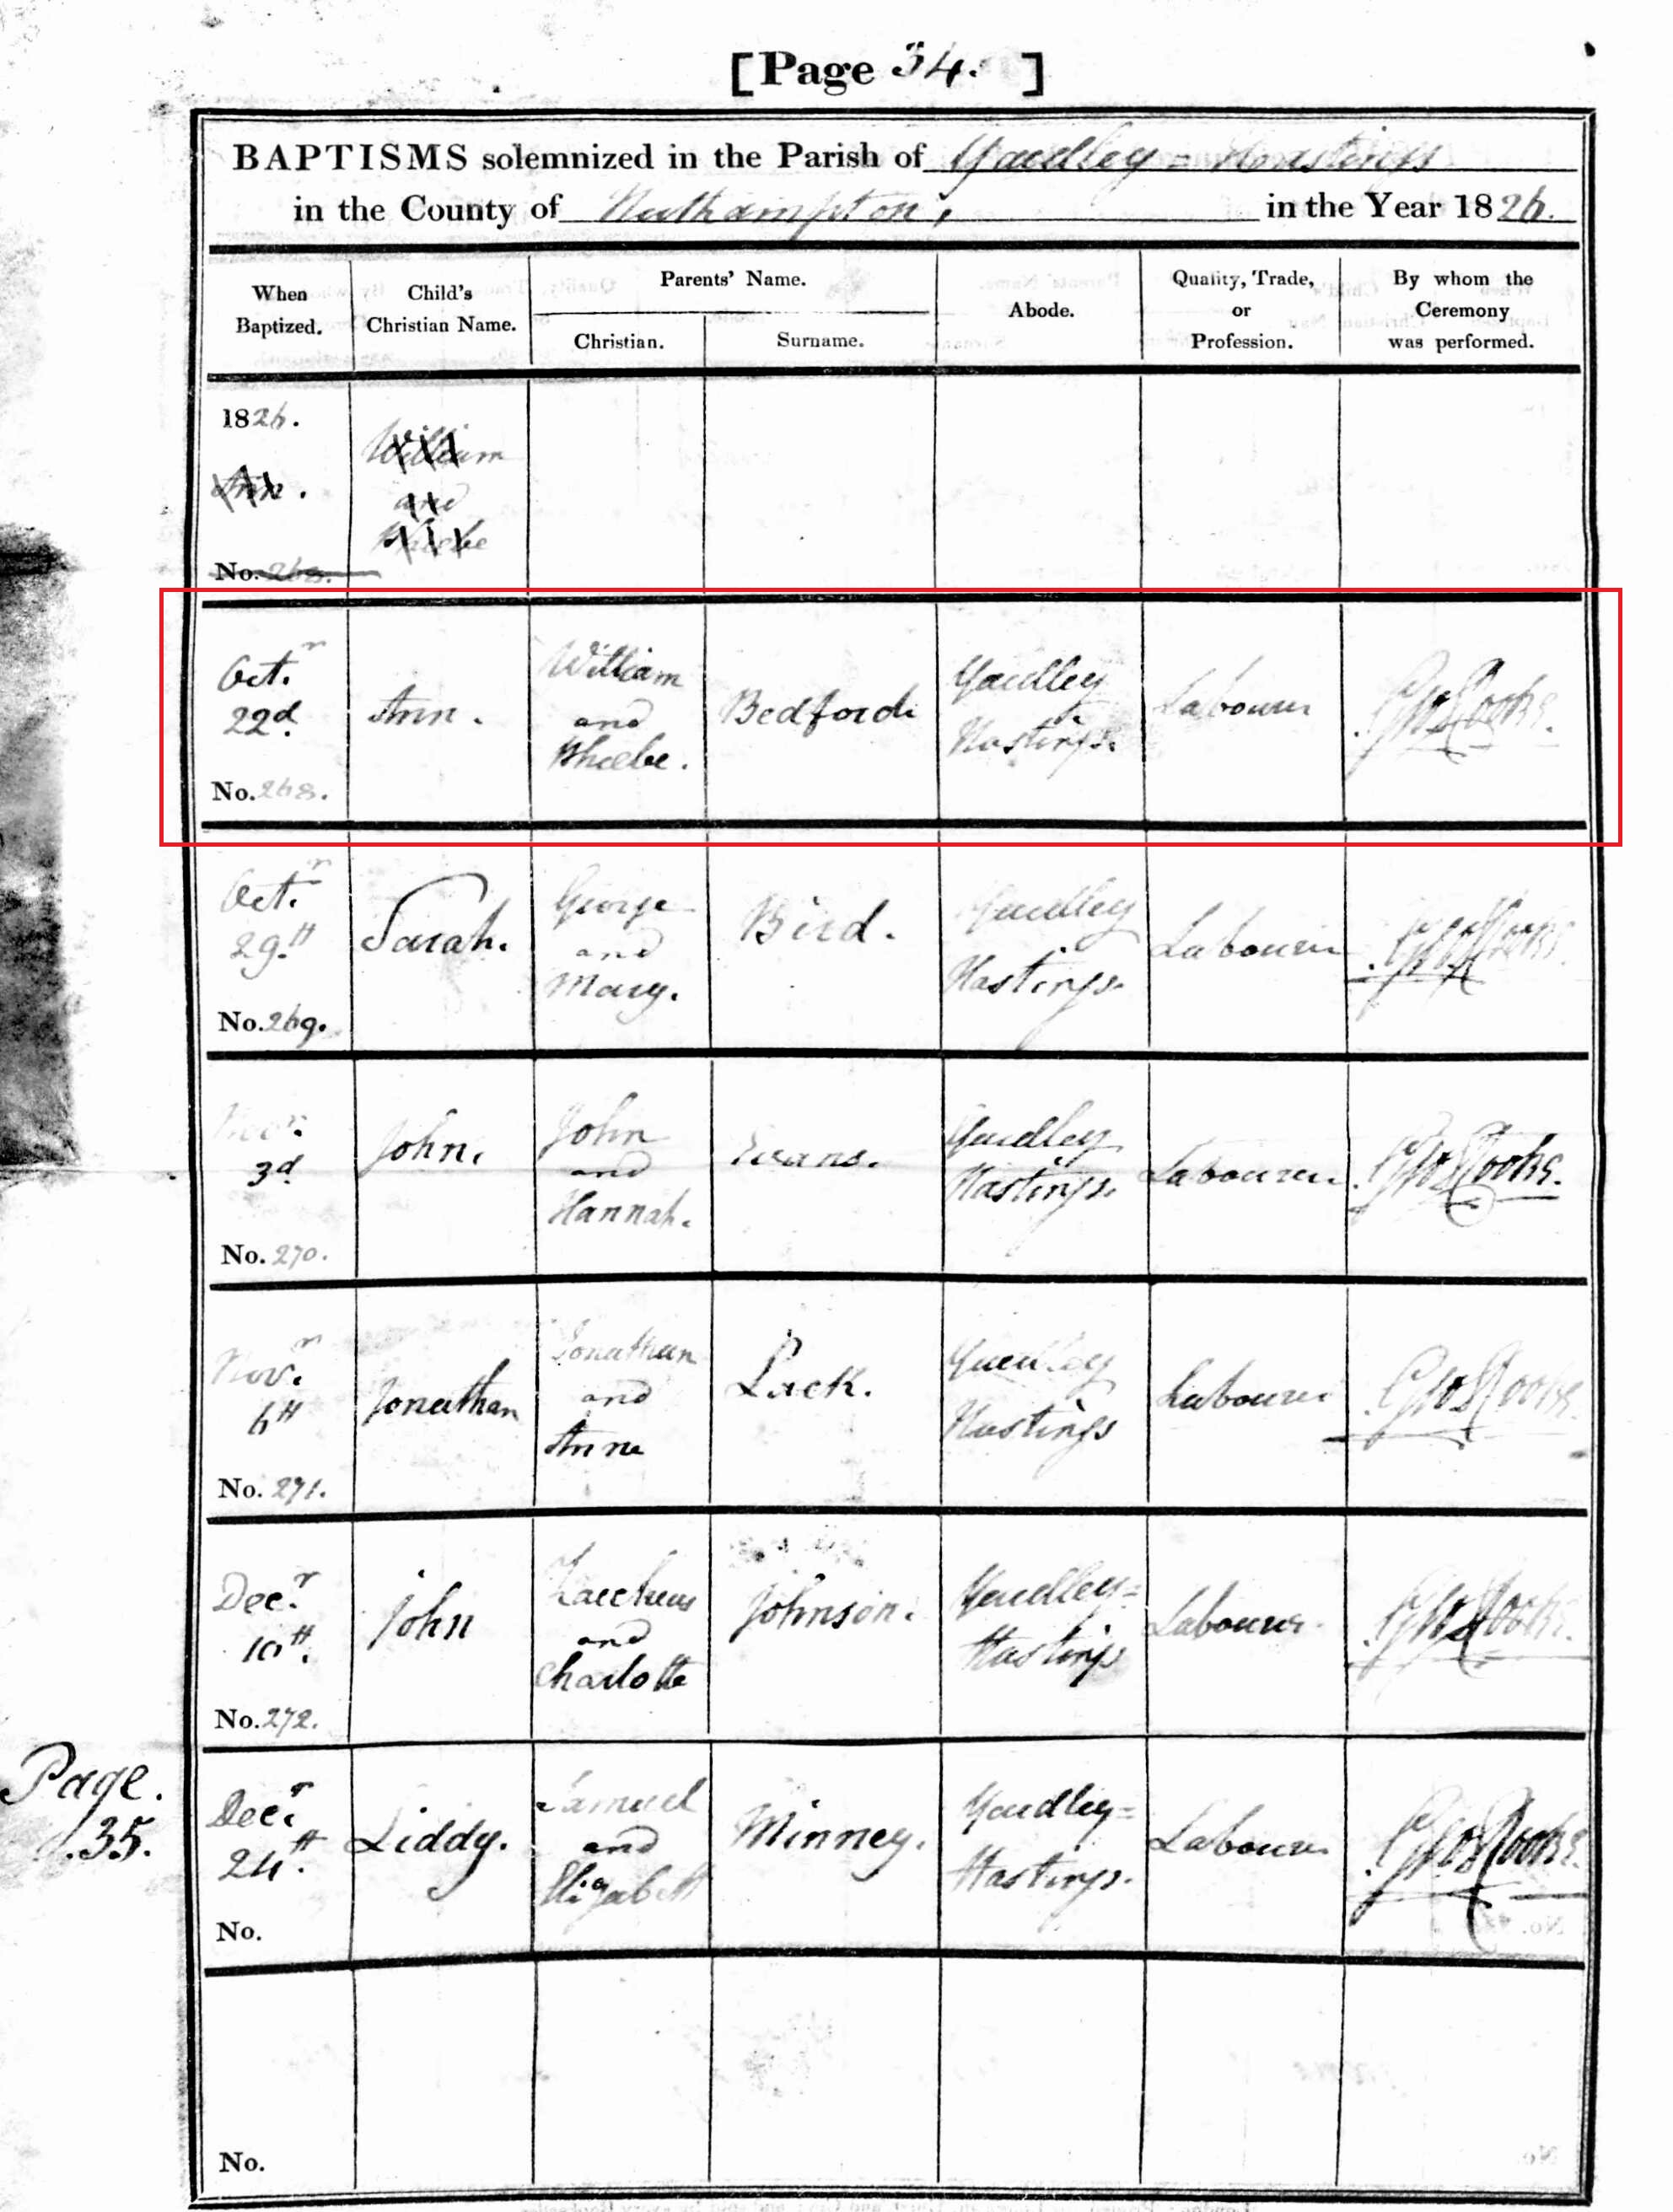 [Page 34. ]
BAPTISMS solemnized in the Parish of Yardley = Hastings
in the County of Northampton, in the Year 1826.
When Baptized. Child's Christian Name. Parents' Name. Christian. Surname. Abode. Quality, Trade, or Profession. By whom the Ceremony was performed.
1826.
Ann.
William
and
Phoebe
No. 268.
Octr.
22d.
No. 268.
Ann.
William
and
Phoebe.
Bedford
Yardley
Hastings.
Labourer
Octr.
29th.
No. 269.
Sarah.
George
and
Mary.
Bird.
Yardley
Hastings.
Labourer
Novr.
3d
No. 270.
John.
John
and
Hannah.
Evans.
Yardley
Hastings.
Labourer
Novr.
6th
No. 271.
Jonathan
Jonathan
and
Anne
Lack.
Yardley
Hastings
Labourer
Decr.
10th.
No. 272.
John
Zaccheus
and
Charlotte
Johnson.
Yardley=
Hastings
Labourer
Page.
.35.
Decr.
24th.
No.
Liddy.
Samuel
and
Elizabeth
Minney.
Yardley=
Hastings.
Labourer
No.